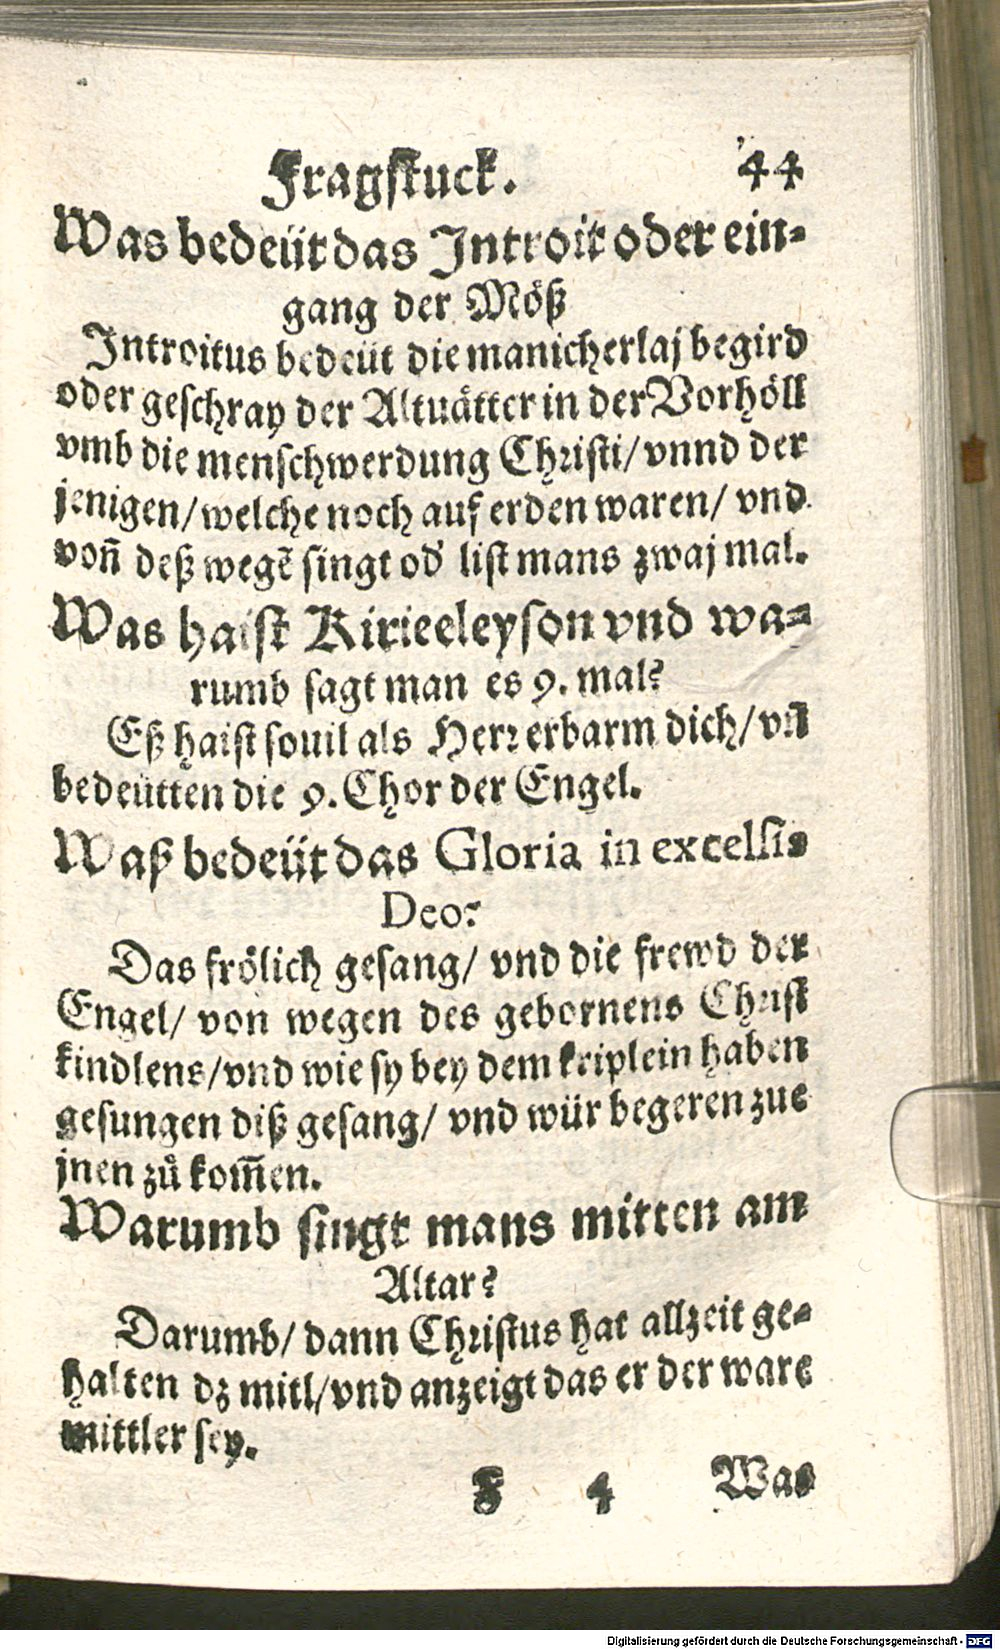 Fragstuck. 44
Was bedeüt das Introit oder ein-
gang der Möß
Introitus bedeüt die manicherlaj begird
oder geschray der Altuätter in der Vorhöll
vmb die menschwerdung Christi/ vnnd der
jenigen/ welche noch auf erden waren/ vnd
von̄ deß wegē singt od̕ list mans zwaj mal.
Was haist Kirieeleyson vnd wa-
rumb sagt man es 9. mal?
Eß haist souil als Herr erbarm dich/ vn̄
bedeütten die 9. Chor der Engel.
Waß bedeüt das Gloria in excelsis
Deo?
Das frölich gesang/ vnd die frewd der
Engel/ von wegen des gebornens Christ
kindlens/ vnd wie sy bey dem kriplein haben
gesungen diß gesang/ vnd wür begeren zue
jnen zů kom̄en.
Warumb singt mans mitten am
Altar?
Darumb/ dann Christus hat allzeit ge-
halten dz mitl/ vnd anzeigt das er der ware
mittler sey.
F 4 Was
Digitalisierung gefördert durch die Deutsche Forschungsgemeinschaft - DFG